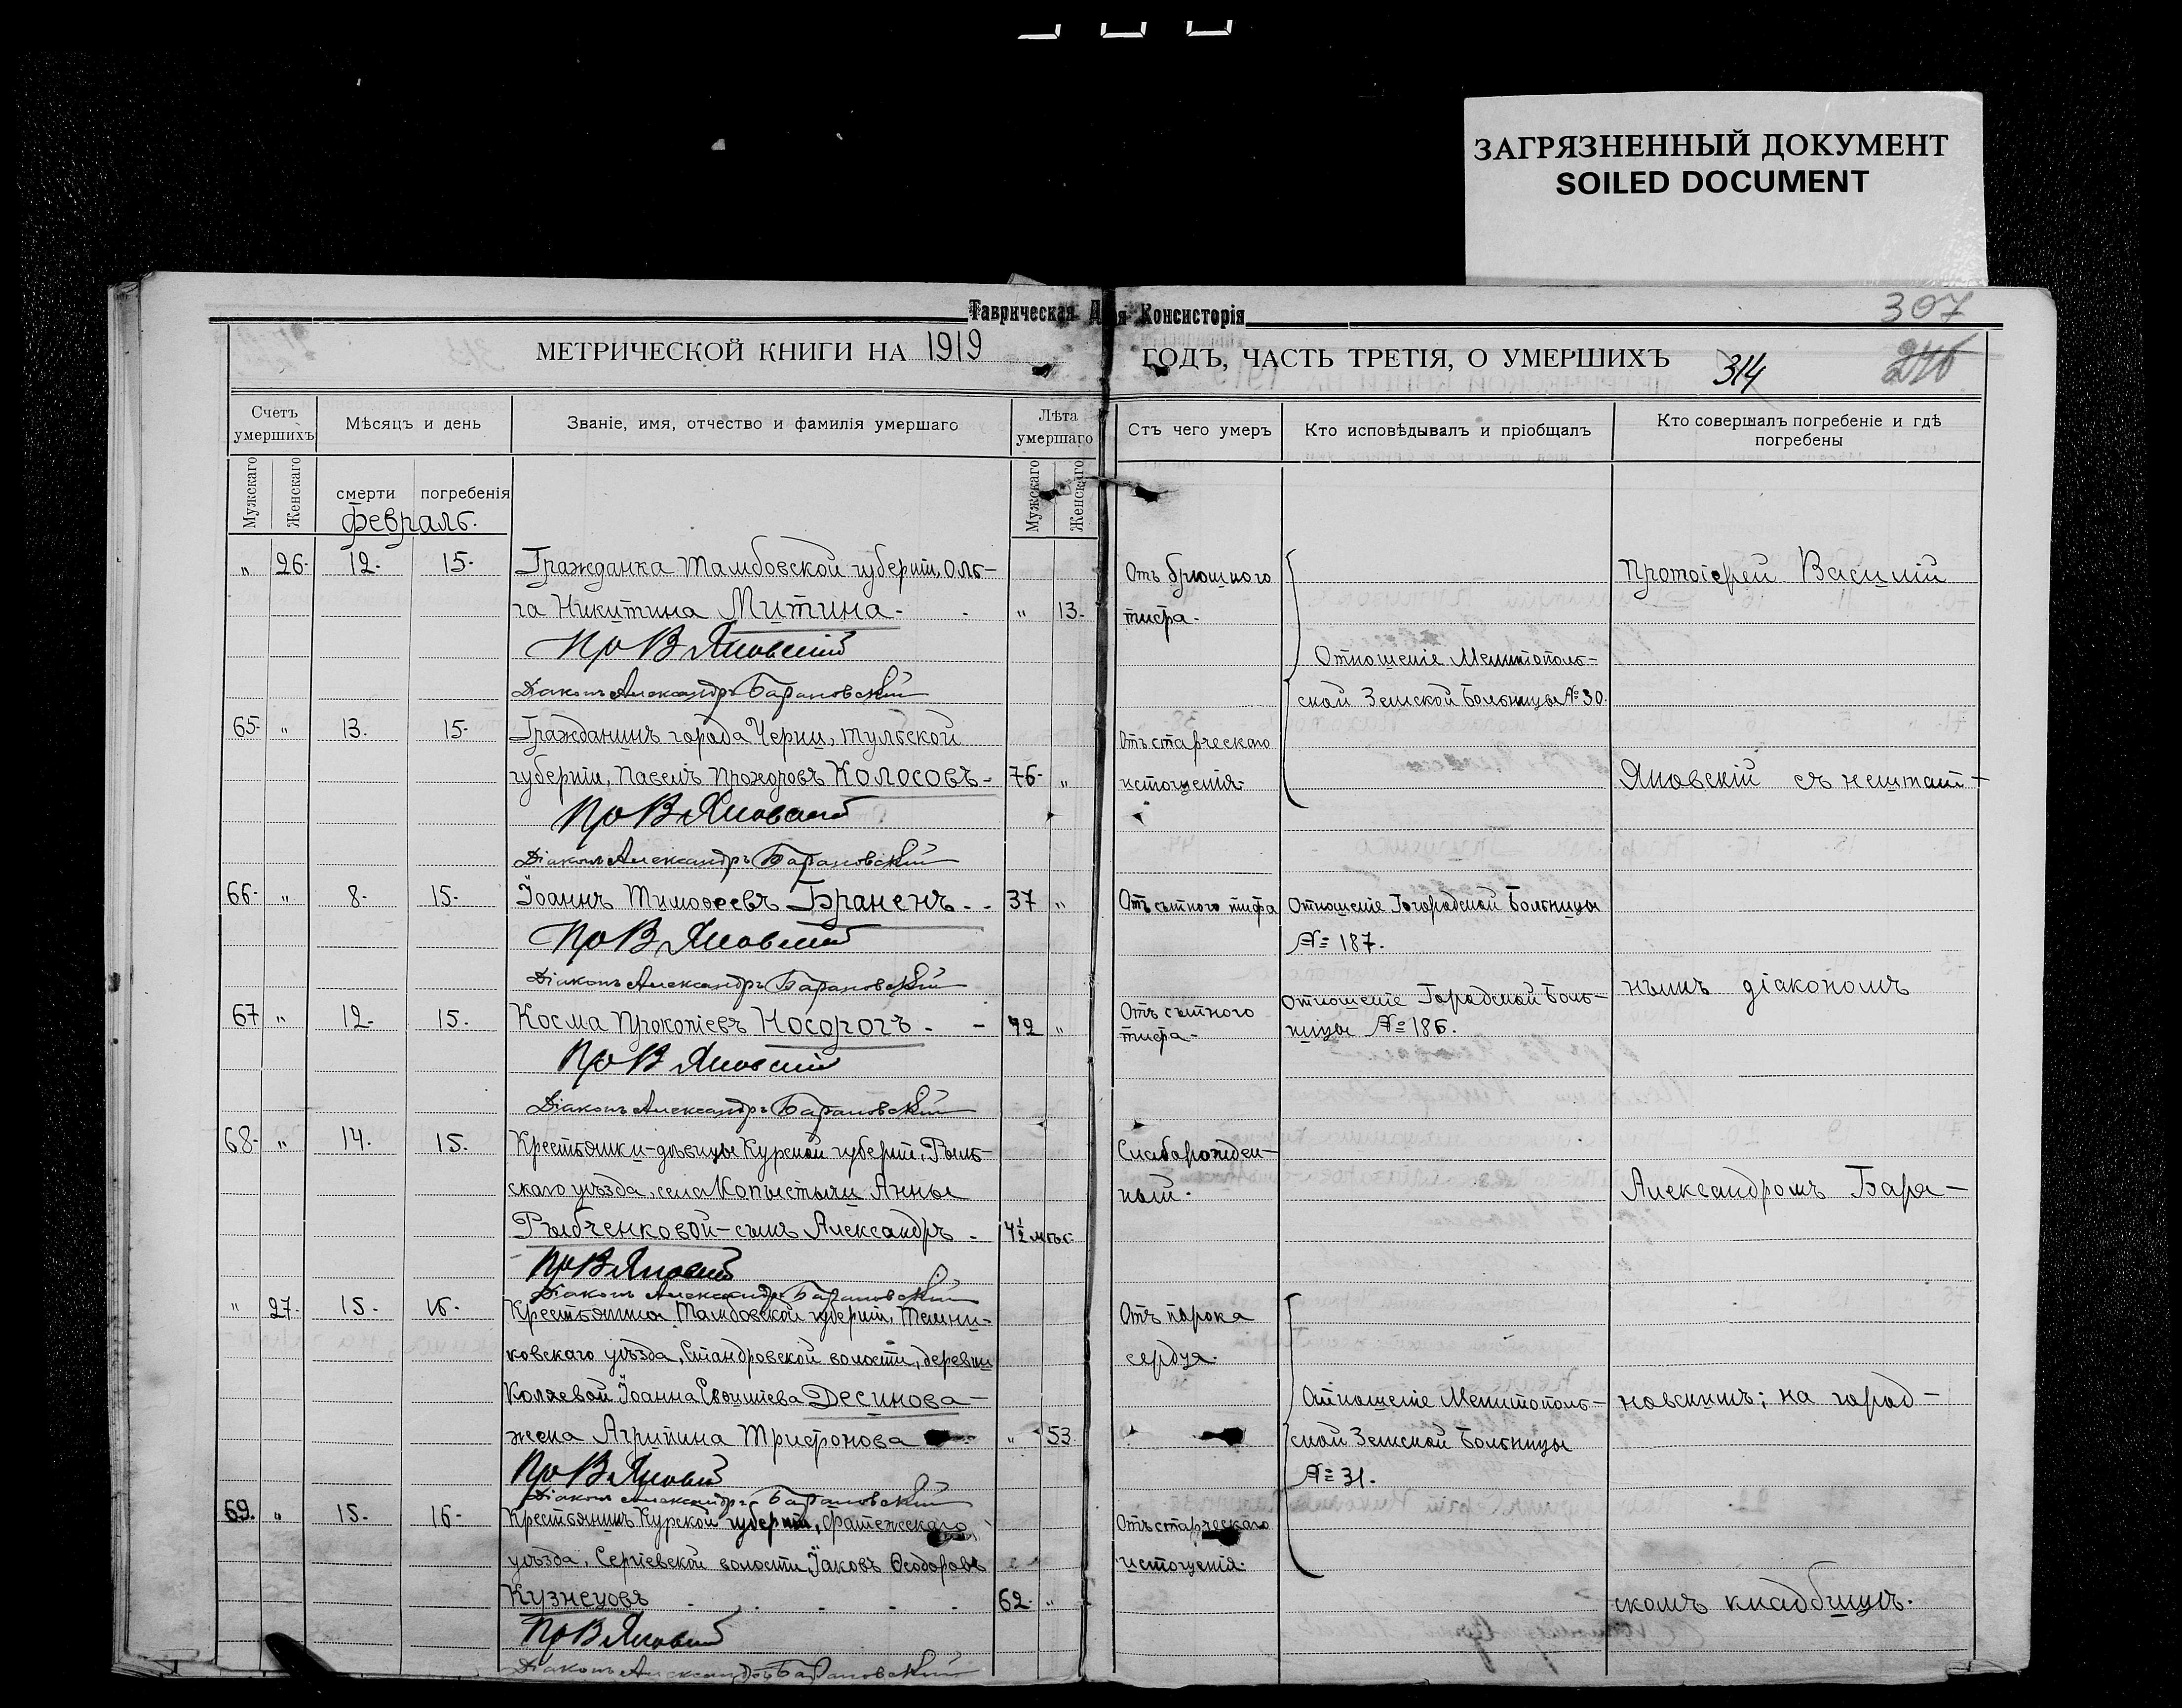 ЗАГРЯЗНЕННЫЙ ДОКУМЕНТ
SOILED DOCUMENT
307
Таврическая Д я Консисторія
МЕТРИЧЕСКОЙ КНИГИ НА 1919
ГОДЪ, ЧАСТЬ ТРЕТІЯ, О УМЕРШИХЪ
314
246
Счетъ умершихъ
Мѣсяцъ и день
Званіе, имя, отчество и фамилія умершаго
Лѣта умершаго
Стъ чего умеръ
Кто исповѣдывалъ и пріобщалъ
Кто совершалъ погребеніе и гдѣ погребены
Мужскаго
Женскаго
смерти
погребенія
Мужскаго
Женскаго
Февраль.
„ 26. 12. 15. Гражданка Тамбовской губерніи, Оль-
га Никитина Митина. „ 13.
Отъ брюшного
тифа.
Пр В Яновскій
Діаконъ Александръ Барановскій
Отношеніе Мелитополь-
ской Земской Больницы № 30.
Протоіерей Василій
65. „ 13. 15. Гражданинъ города Черни, Тульской
губерніи, Павелъ Прохоровъ Колосовъ. 76. „
Отъ старческаго
истощенія.
Яновскій съ нештат-
Пр В Яновскій
Діаконъ Александръ Барановскій
66. „ 8. 15. Іоаннъ Тимоѳеевъ Браненъ. 37 „
Отъ сыпного тифа
Отношеніе Городской Больницы
№ 187.
Пр В Яновскій
Діаконъ Александръ Барановскій
нымъ діакономъ
67 „ 12. 15. Косма Прокопіевъ Носорогъ. 42 „
Отъ сыпного
тифа.
Отношеніе Городской Боль-
ницы № 186.
Пр В Яновскій
Діаконъ Александръ Барановскій
68. „ 14. 15. Крестьянки-дѣвицы Курской губерніи, Рыль-
скаго уѣзда, села Копыстычи Анны
Рыбченковой-сынъ Александръ. 4½ мѣс.
Слаборожден-
ный.
Александромъ Бара-
Пр В Яновскій
Діаконъ Александръ Барановскій
„ 27. 15. 16. Крестьянина Тамбовской губерніи, Темни-
ковскаго уѣзда, Стандровской волости, деревни
Коляевой Іоанна Десинова-
жена Агрипина Трифонова „ 53
Отъ порока
сердца.
Отношеніе Мелитополь-
ской Земской Больницы
№ 31.
новскимъ; на город-
Пр В Яновскій
Діаконъ Александръ Барановскій
69. „ 15. 16. Крестьянинъ Курской губерніи, Фатежскаго
уѣзда, Сергіевской волости, Іаковъ Ѳеодоровъ
Кузнецовъ 62. „
Отъ старческаго
истощенія.
скомъ кладбищѣ.
Пр В Яновскій
Діаконъ Александръ Барановскій